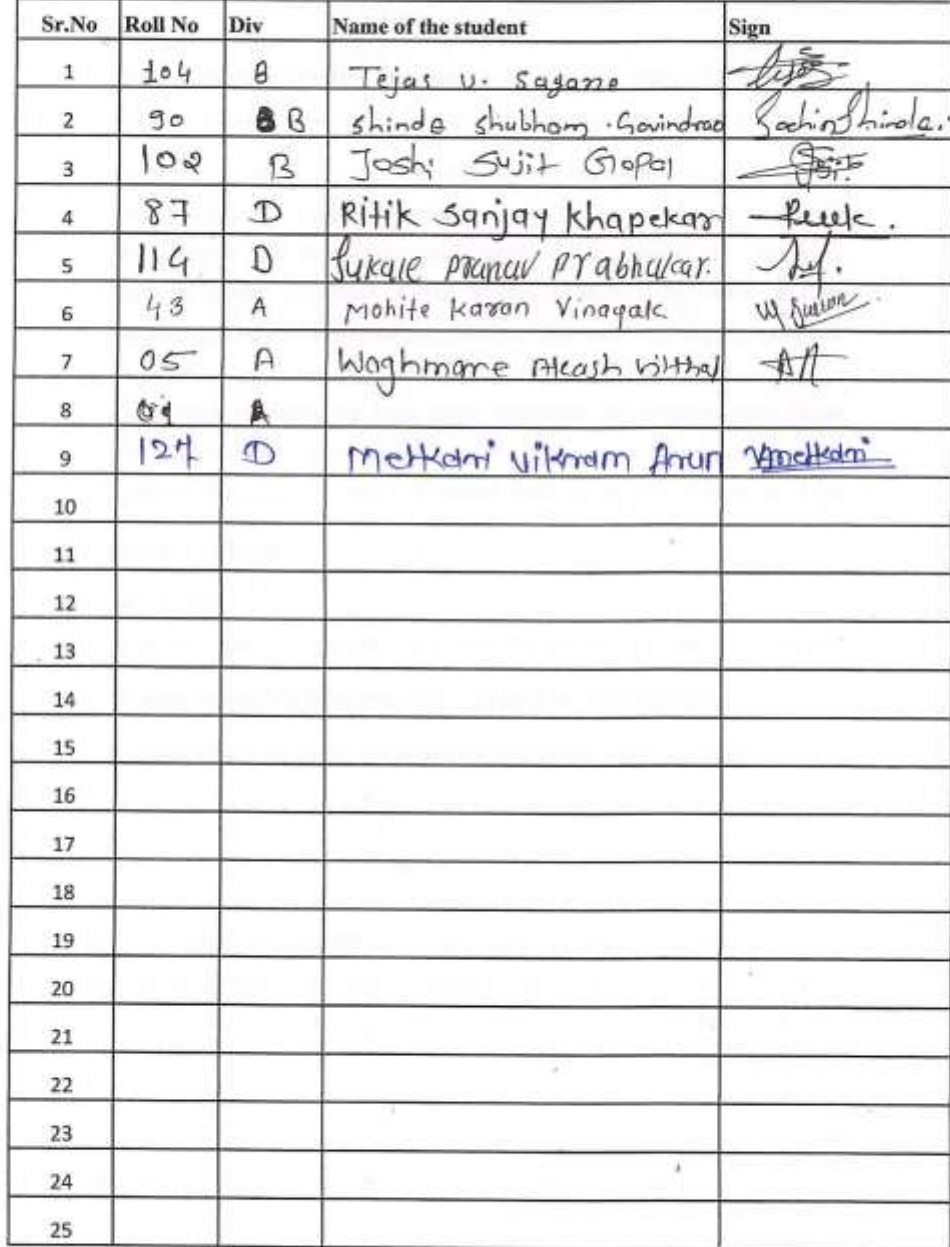 Sr.No Roll No Div Name of the student Sign
1 104 B Tejas V. Sagane
2 90 B Shinde Shubham .Govindrao Sachin Shinde.
3 102 B Joshi Sujit Gopal
4 87 D Ritik Sanjay Khapekar
5 114 D Sukale Pranav Prabhakar.
6 43 A Mohite Karan Vinayak
7 05 A Waghmare Akash Vitthal
8
9 127 D Metkari Vikram Arun VMetkari
10
11
12
13
14
15
16
17
18
19
20
21
22
23
24
25